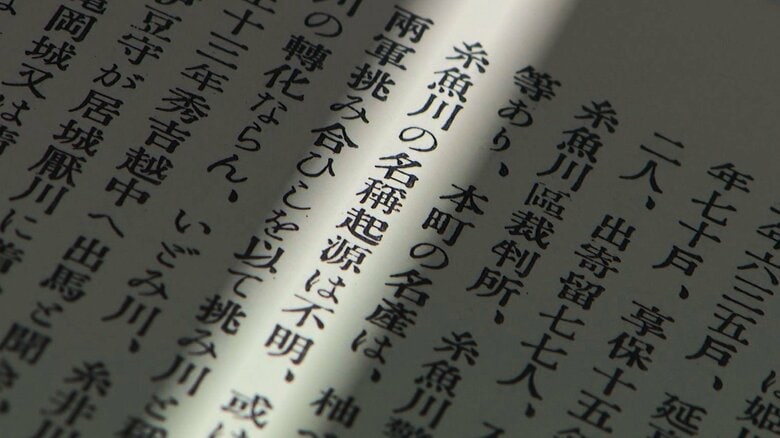 は姫
年六三五戸、延
年七十戸、享保十五年
二人、出寄留七七人、
糸魚川區裁判所、糸魚川警
等あり、本町の名産は、柚
糸魚川の名稱起源は不明、或は
兩軍挑み合ひしを以て挑み川と稱
川の轉化ならん、いどみ川、糸非川
正十三年秀吉越中へ出馬と聞き
伊豆守が居城厭川に着
龜岡城又は清